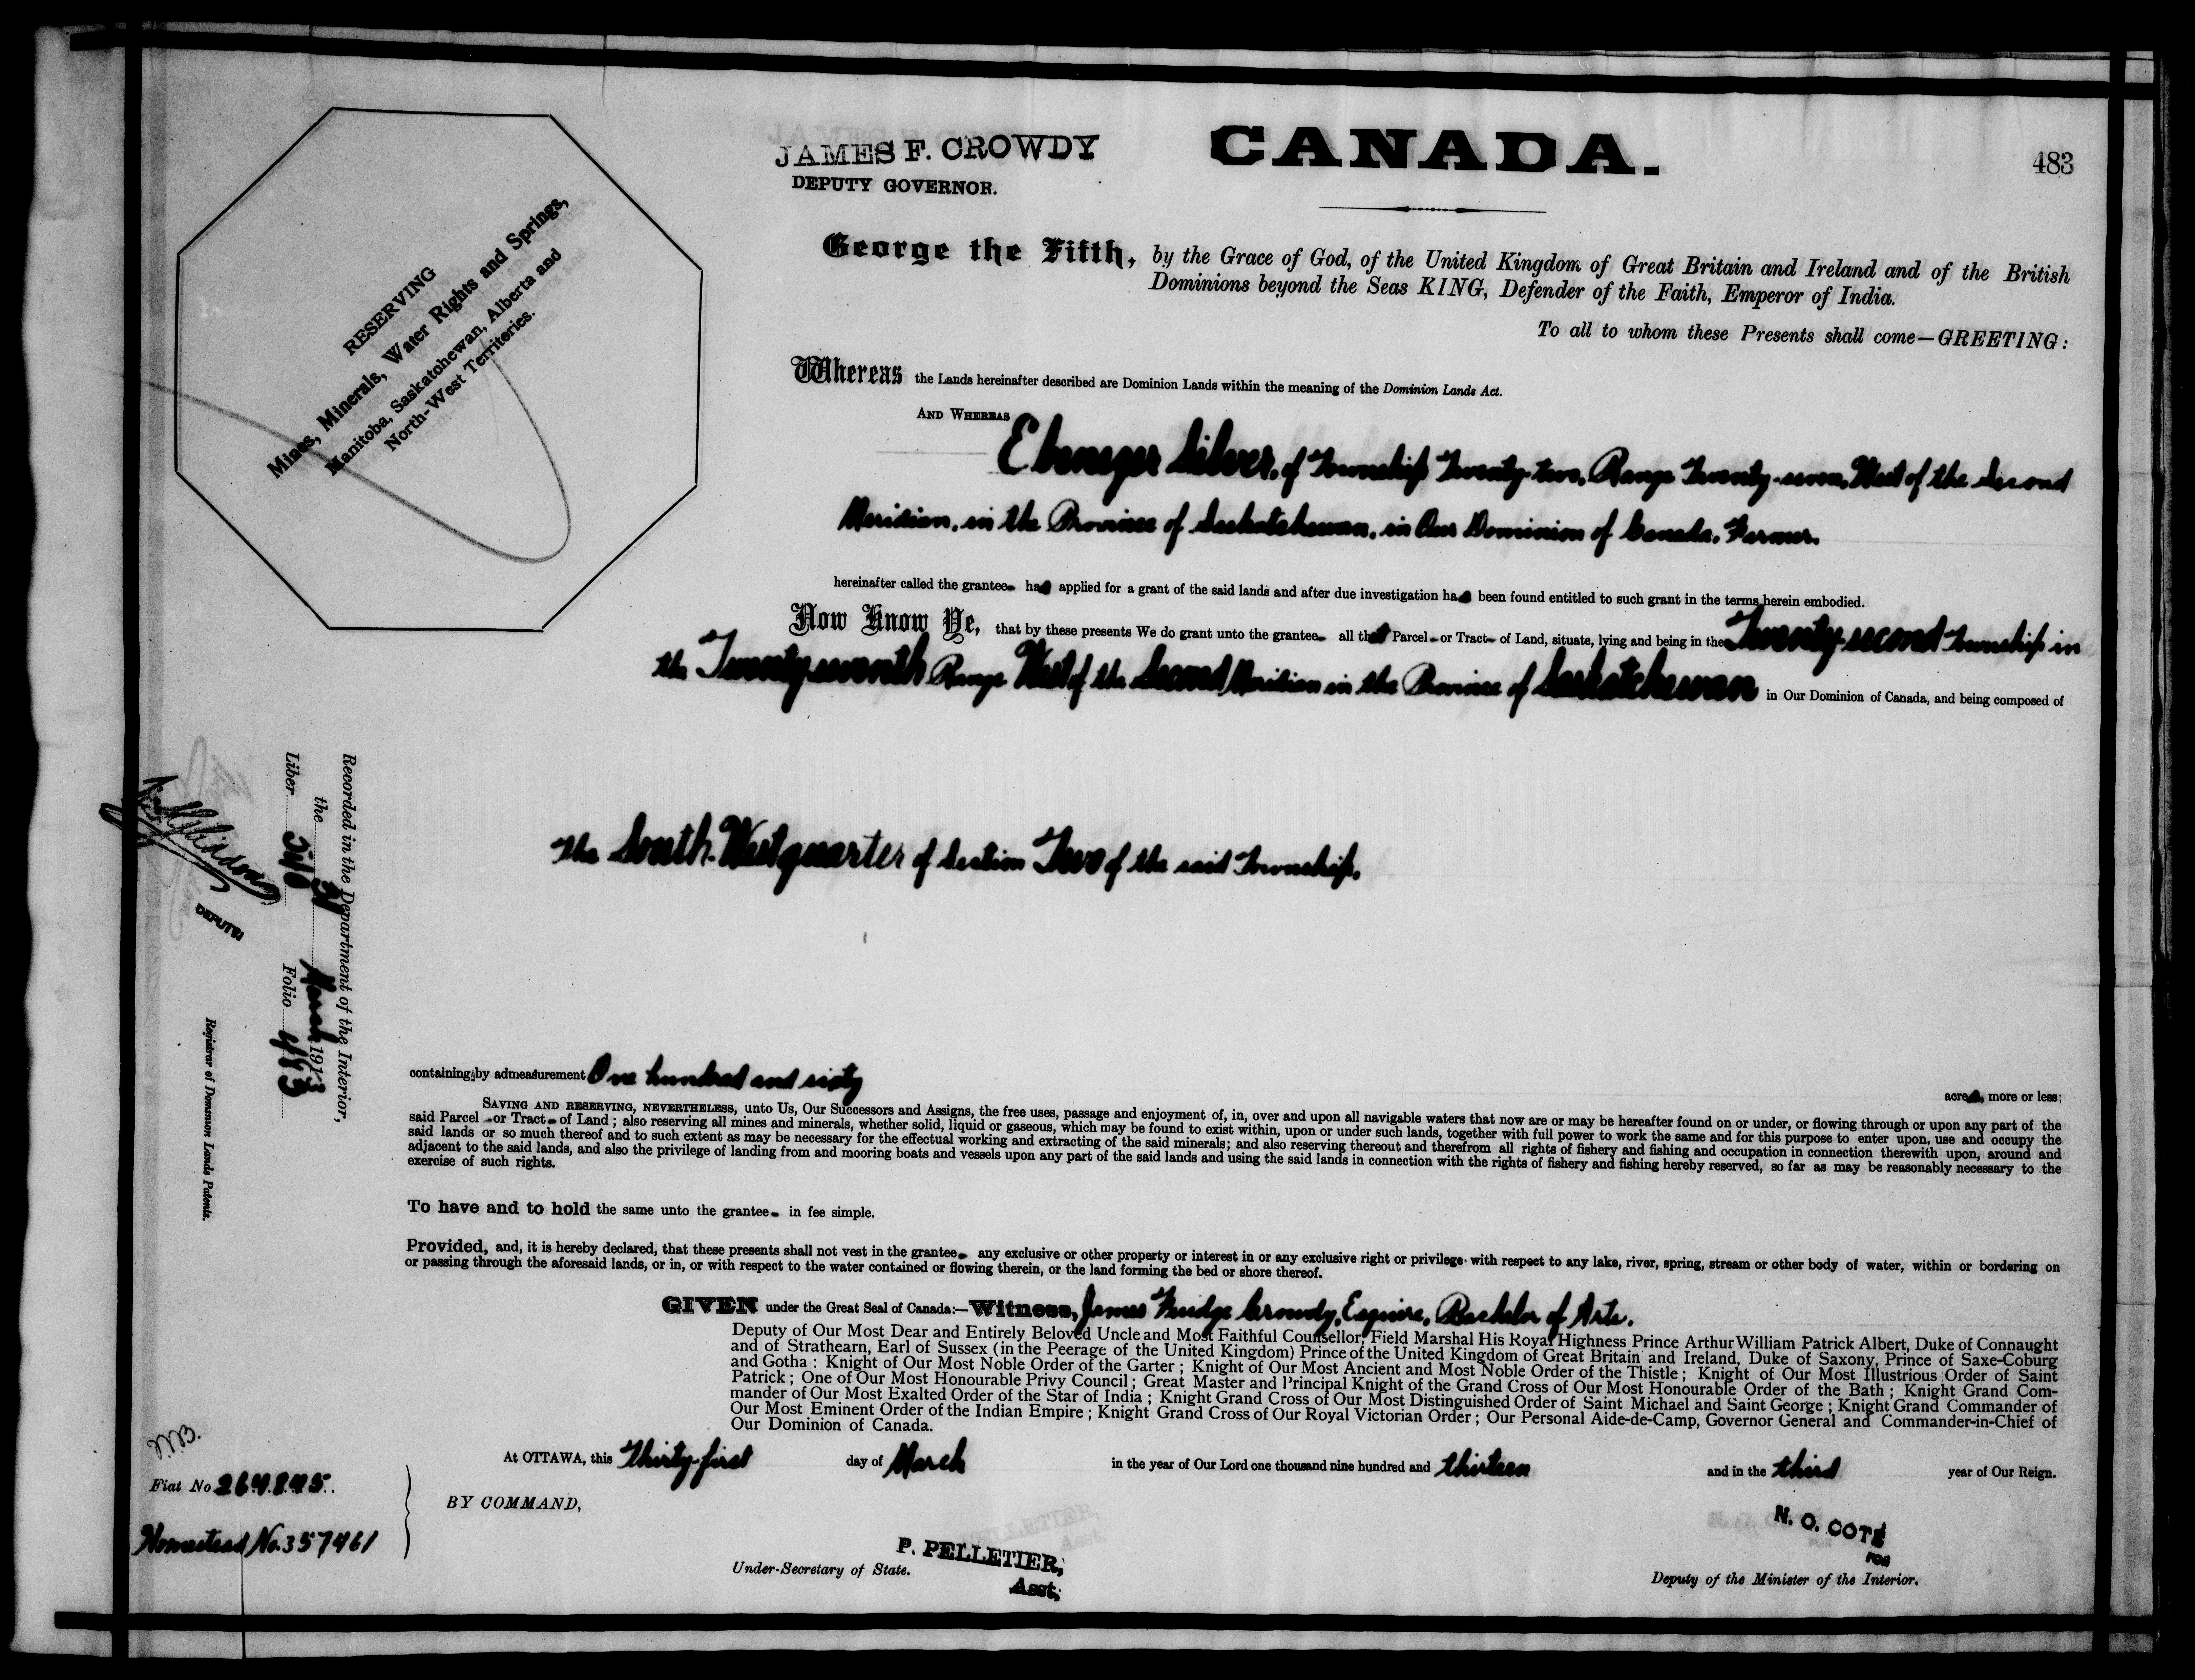 JAMES F. CROWDY
DEPUTY GOVERNOR.
CANADA.
483
RESERVING
Mines, Minerals, Water Rights and Springs,
Manitoba, Saskatchewan, Alberta and
North-West Territories.
George the Fifth, by the Grace of God, of the United Kingdom of Great Britain and Ireland and of the British
Dominions beyond the Seas KING, Defender of the Faith, Emperor of India.
To all to whom these Presents shall come—GREETING:
Whereas the Lands hereinafter described are Dominion Lands within the meaning of the Dominion Lands Act.
AND WHEREAS
Ebenezer Silver, of Township Twenty-two, Range Twenty-seven, West of the Second
Meridian, in the Province of Saskatchewan, in Our Dominion of Canada, Farmer.
hereinafter called the grantee has applied for a grant of the said lands and after due investigation has been found entitled to such grant in the terms herein embodied.
Now Know Ye, that by these presents We do grant unto the grantee all that Parcel or Tract of Land, situate, lying and being in the Twenty-second Township in
the Twenty-seventh Range West of the Second Meridian in the Province of Saskatchewan in Our Dominion of Canada, and being composed of
The South-West quarter of Section Two of the said Township.
containing by admeasurement One hundred and sixty
acres, more or less;
SAVING AND RESERVING, NEVERTHELESS, unto Us, Our Successors and Assigns, the free uses, passage and enjoyment of, in, over and upon all navigable waters that now are or may be hereafter found on or under, or flowing through or upon any part of the
said Parcel or Tract of Land; also reserving all mines and minerals, whether solid, liquid or gaseous, which may be found to exist within, upon or under such lands, together with full power to work the same and for this purpose to enter upon, use and occupy the
said lands or so much thereof and to such extent as may be necessary for the effectual working and extracting of the said minerals; and also reserving thereout and therefrom all rights of fishery and fishing and occupation in connection therewith upon, around and
adjacent to the said lands, and also the privilege of landing from and mooring boats and vessels upon any part of the said lands and using the said lands in connection with the rights of fishery and fishing hereby reserved, so far as may be reasonably necessary to the
exercise of such rights.
To have and to hold the same unto the grantee in fee simple.
Provided, and, it is hereby declared, that these presents shall not vest in the grantee any exclusive or other property or interest in or any exclusive right or privilege with respect to any lake, river, spring, stream or other body of water, within or bordering on
or passing through the aforesaid lands, or in, or with respect to the water contained or flowing therein, or the land forming the bed or shore thereof.
GIVEN under the Great Seal of Canada:—Witness, James Fudge Crowdy, Esquire, Bachelor of Arts.
Deputy of Our Most Dear and Entirely Beloved Uncle and Most Faithful Counsellor, Field Marshal His Royal Highness Prince Arthur William Patrick Albert, Duke of Connaught
and of Strathearn, Earl of Sussex (in the Peerage of the United Kingdom) Prince of the United Kingdom of Great Britain and Ireland, Duke of Saxony, Prince of Saxe-Coburg
and Gotha: Knight of Our Most Noble Order of the Garter; Knight of Our Most Ancient and Most Noble Order of the Thistle; Knight of Our Most Illustrious Order of Saint
Patrick; One of Our Most Honourable Privy Council; Great Master and Principal Knight of the Grand Cross of Our Most Honourable Order of the Bath; Knight Grand Com-
mander of Our Most Exalted Order of the Star of India; Knight Grand Cross of Our Most Distinguished Order of Saint Michael and Saint George; Knight Grand Commander of
Our Most Eminent Order of the Indian Empire; Knight Grand Cross of Our Royal Victorian Order; Our Personal Aide-de-Camp, Governor General and Commander-in-Chief of
Our Dominion of Canada.
At OTTAWA, this Thirty-first day of March in the year of Our Lord one thousand nine hundred and thirteen and in the third year of Our Reign.
BY COMMAND,
P. PELLETIER,
Asst.
Under-Secretary of State.
N. O. COTÉ
FOR
Deputy of the Minister of the Interior.
Recorded in the Department of the Interior,
the 31 March 1913
Liber Folio 483
DEPUTY
Registrar of Dominion Lands Patents.
Fiat No 264845.
Homestead No. 357461